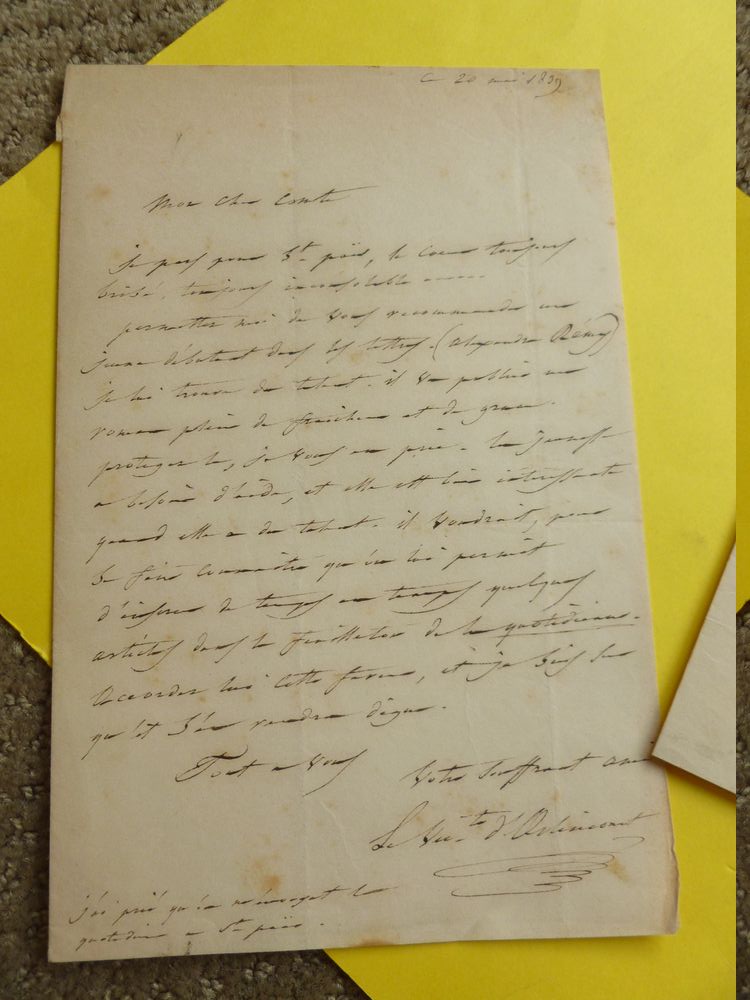 ce 20 mai 1839
Mon cher Comte
je pars pour St païr, le coeur toujours
brisé, toujours inconsolable
permettez moi de vous recommander un
jeune débutant dans les lettres. (Alexandre Rémy)
je lui trouve du talent. il va publier un
roman plein de fraicheur et de grace.
protegez le, je vous en prie. la jeunesse
a besoin d'aide, et elle est bien intéressante
quand elle a du talent. il voudrait, pour
se faire connaitre qu'on lui permit
d'insérer de temps en temps quelques
articles dans le feuilleton de la quotidienne.
accordez lui cette faveur, et je suis sur
qu'il s'en rendra digne.
Tout a vous
Votre souffrant ami
Le Victe d'Arlincourt
j'ai prié qu'on m'envoyat la
quotidienne a St païr.